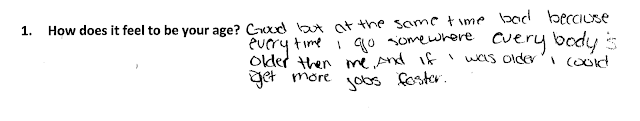 1. How does it feel to be your age? Good but at the same time bad because
every time i go somewhere every body is
older then me, And if i was older i could
get more jobs faster.